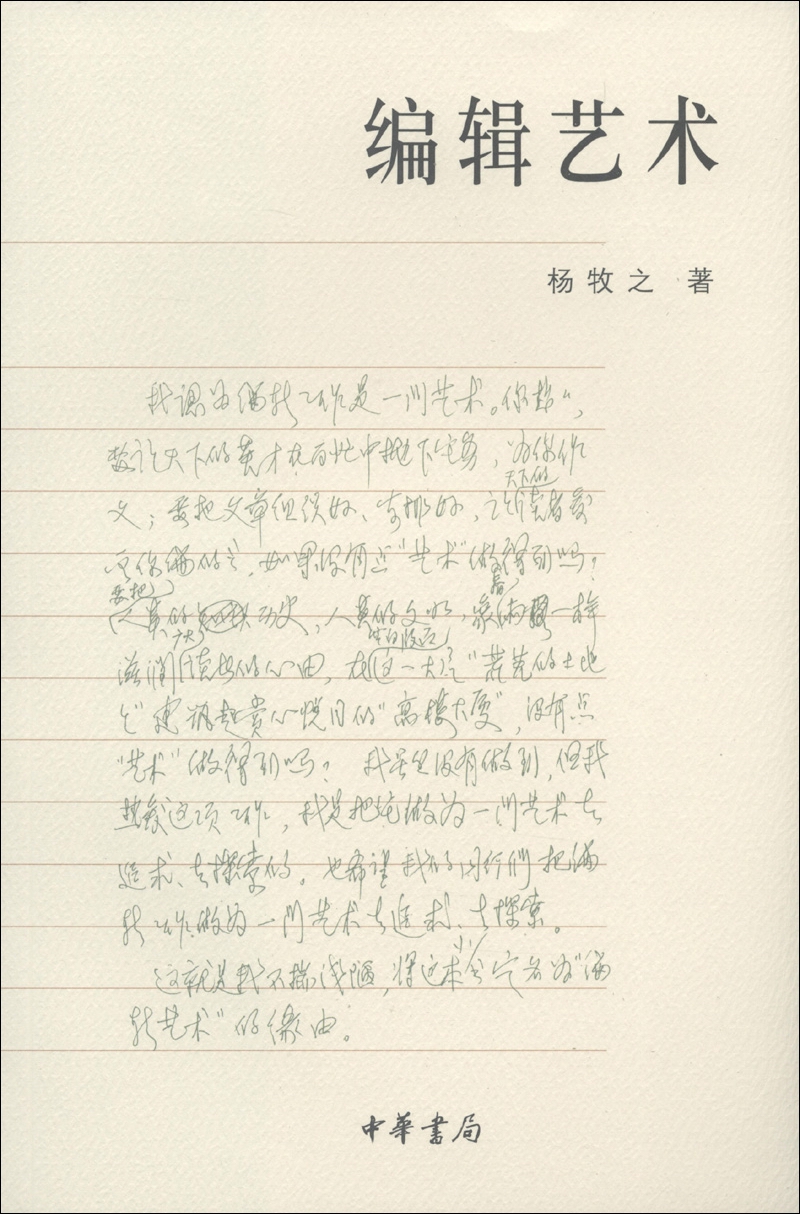 编辑艺术
杨牧之 著
我认为编辑工作是一门艺术。你想,
要让天下的英才在百忙中抛下它务,为你作
天下的
文;要把文章组织好、安排好,让读者爱
看你编的书,如果没有点“艺术”做得到吗?
要把
人类的历史,人类的文明,象一样
滋润读者的心田,在这一大片“荒芜的土地
上”建筑起赏心悦目的“高楼大厦”,没有点
“艺术”做得到吗?我虽然没有做到,但我
热爱这项工作,我是把它做为一门艺术去
追求、去探索的。也希望我的同行们把编
辑工作做为一门艺术去追求、去探索。
这就是我不揣浅陋,将这本小书定名为“编
辑艺术”的缘由。
中華書局